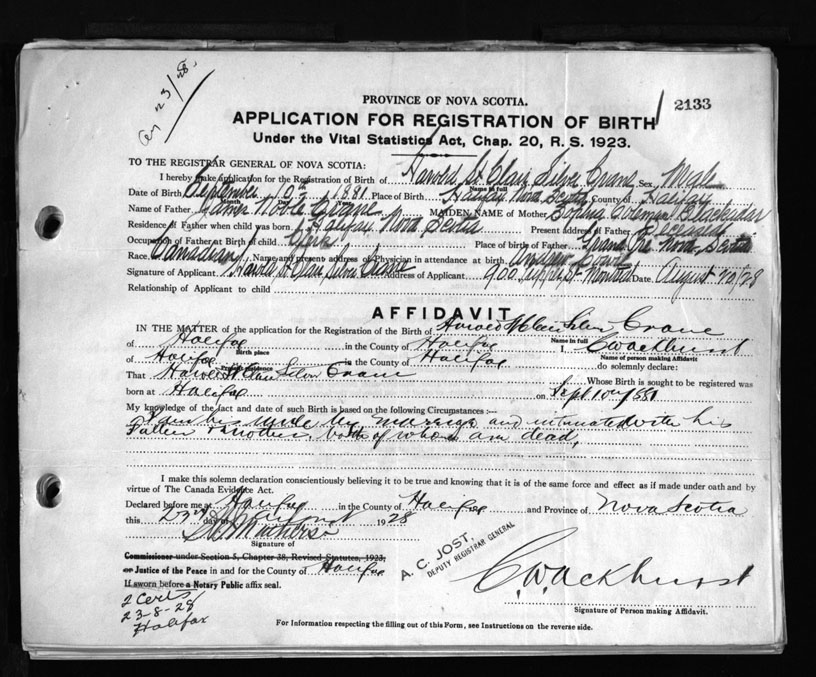 Aug 23/28
2133
PROVINCE OF NOVA SCOTIA.
APPLICATION FOR REGISTRATION OF BIRTH
Under the Vital Statistics Act, Chap. 20, R. S. 1923.
TO THE REGISTRAR GENERAL OF NOVA SCOTIA:
I hereby make application for the Registration of Birth of Harold St Clair Silver Crane Sex Male
Name in full
Date of Birth September 10th 1881 Place of Birth Halifax Nova Scotia County of Halifax
Month
Name of Father James Noble Crane MAIDEN NAME of Mother Sophia Coleman Blackadar
Residence of Father when child was born Halifax Nova Scotia Present address of Father Deceased
Occupation of Father at Birth of child Clerk Place of birth of Father Grand Pré Nova Scotia
Race Canadian Name and present address of Physician in attendance at birth Andrew Cowie
Signature of Applicant Harold St Clair Silver Crane Address of Applicant 900 St Montreal Date August 20/28
Relationship of Applicant to child
AFFIDAVIT
IN THE MATTER of the application for the Registration of the Birth of Harold St Clair Silver Crane
Name in full
of Halifax in the County of Halifax I, C W Ackhurst
Birth place Name of person making Affidavit
of Halifax in the County of Halifax do solemnly declare:
That Harold St Clair Silver Crane Whose Birth is sought to be registered was
born at Halifax on Sept 10th 1881
My knowledge of the fact and date of such Birth is based on the following Circumstances :—
I am his uncle by marriage and intimated with his
Father & mother, both of whom are dead,
I make this solemn declaration conscientiously believing it to be true and knowing that it is of the same force and effect as if made under oath and by
virtue of The Canada Evidence Act.
Declared before me at Halifax in the County of Halifax and Province of Nova Scotia
this 23rd day of August 1928
Signature of
Commissioner under Section 5, Chapter 38, Revised Statutes, 1923,
or Justice of the Peace in and for the County of Halifax
If sworn before a Notary Public affix seal.
A. C. JOST,
DEPUTY REGISTRAR GENERAL
C. W. Ackhurst
Signature of Person making Affidavit.
2 Certs
23-8-28
Halifax
For Information respecting the filling out of this Form, see Instructions on the reverse side.